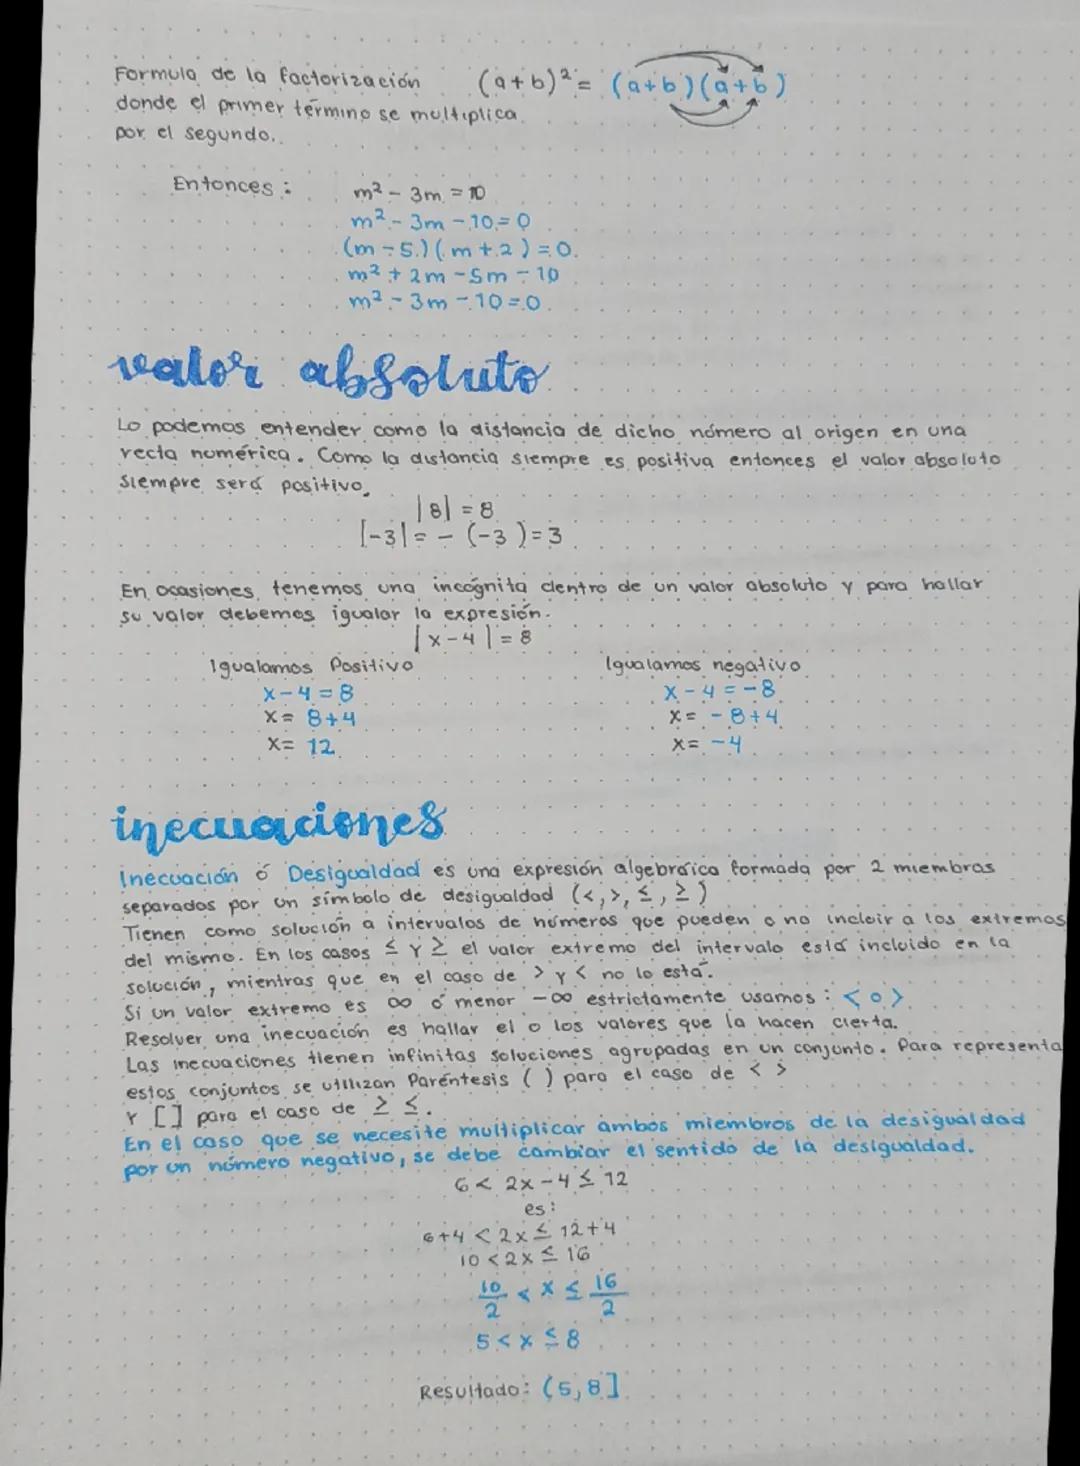 Formula de la factorización (a+b)² = (a+b)(a+b)
donde el primer término se multiplica
por el segundo.
Entonces: m² - 3m = 10
m² - 3m - 10 = 0
(m - 5)(m + 2) = 0
m² + 2m - 5m - 10
m² - 3m - 10 = 0
valor absoluto
Lo podemos entender como la distancia de dicho número al origen en una
recta numérica. Como la distancia siempre es positiva entonces el valor absoluto
siempre será positivo.
|8| = 8
|-3| = - (-3) = 3
En ocasiones tenemos una incógnita dentro de un valor absoluto y para hallar
su valor debemos igualar la expresión.
|x - 4| = 8
Igualamos Positivo Igualamos negativo
x - 4 = 8 x - 4 = -8
x = 8+4 x = -8+4
x = 12 x = -4
inecuaciones
Inecuación ó Desigualdad es una expresión algebraíca formada por 2 miembros
separados por un símbolo de desigualdad (<, >, ≤, ≥)
Tienen como solución a intervalos de números que pueden o no incluir a los extremos
del mismo. En los casos ≤ Y ≥ el valor extremo del intervalo está incluido en la
solución, mientras que en el caso de > y < no lo está.
Si un valor extremo es ∞ ó menor -∞ estrictamente usamos: < o >
Resolver una inecuación es hallar el o los valores que la hacen cierta.
Las inecuaciones tienen infinitas soluciones agrupadas en un conjunto. Para representa
estos conjuntos se utilizan Paréntesis ( ) para el caso de < >
Y [ ] para el caso de ≥ ≤.
En el caso que se necesite multiplicar ambos miembros de la desigualdad
por un número negativo, se debe cambiar el sentido de la desigualdad.
6 < 2x - 4 ≤ 12
es:
6+4 < 2x ≤ 12+4
10 < 2x ≤ 16
10/2 < x ≤ 16/2
5 < x ≤ 8
Resultado: (5, 8]